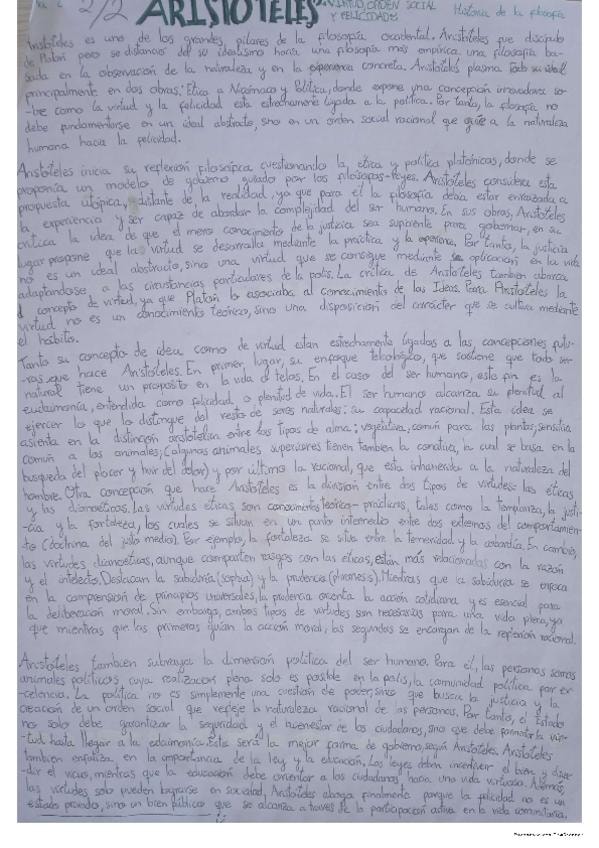 2/2 ARISTÓTELES VIRTUD, ORDEN SOCIAL Y FELICIDAD Historia de la filosofía
Aristóteles es uno de los grandes pilares de la filosofía occidental. Aristóteles fue discípulo
de Platón pero se distanció de su idealismo hacia una filosofía más empírica, una filosofía ba-
sada en la observación de la naturaleza y en la experiencia concreta. Aristóteles plasma todo su ideal
principalmente en dos obras: Ética a Nicómaco y Política, donde expone una concepción innovadora so-
-bre como la virtud y la felicidad esta estrechamente ligada a la política. Por tanto, la filosofía no
debe fundamentarse en un ideal abstracto, sino en un orden social racional que guíe a la naturaleza
humana hacia la felicidad.
Aristóteles inicia su reflexión filosófica cuestionando la ética y política platónicas, donde se
proponía un modelo de gobierno guiado por los filósofos-reyes. Aristóteles considera esta
propuesta utópica, distante de la realidad, ya que para él la filosofía debía estar enraizada a
la experiencia y ser capaz de abordar la complejidad del ser humano. En sus obras, Aristóteles
critica la idea de que el mero conocimiento de la justicia sea suficiente para gobernar, en su
lugar propone que las virtud se desarrolla mediante la práctica y la experiencia. Por tanto, la justicia
no es un ideal abstracto, sino una virtud que se consigue mediante su aplicación en la vida
adaptandose a las circunstancias particulares de la polis. La crítica de Aristóteles tambien abarca
el concepto de virtud, ya que Platón lo asociaba al conocimiento de las Ideas. Para Aristóteles la
virtud no es un conocimiento teórico, sino una disposición del carácter que se cultiva mediante
el hábito.
Tanto su concepto de idea como de virtud estan estrechamente ligados a las concepciones futu-
-ras que hace Aristóteles. En primer lugar, su enfoque teleológico, que sostiene que todo ser-
natural tiene un propósito en la vida o telos. En el caso del ser humano, este fin es la
eudaimonía, entendida como felicidad o plenitud de vida. El ser humano alcanza su plenitud al
ejercer lo que lo distingue del resto de seres naturales: su capacidad racional. Esta idea se
asienta en la distinción aristotélica entre los tipos de alma; vegetativa, común para las plantas; sensitiva
común a los animales; (algunos animales superiores tienen tambien la conativa, la cual se basa en la
busqueda del placer y huir del dolor) y por último la racional, que esta inherente a la naturaleza del
hombre. Otra concepción que hace Aristóteles es la división entre dos tipos de virtudes: las éticas
y las dianoéticas. Las virtudes éticas son conocimientos teórico-prácticos, tales como la templanza, la justi-
-cia y la fortaleza, los cuales se sitúan en un punto intermedio entre dos extremos del comportamien-
to (doctrina del justo medio). Por ejemplo, la fortaleza se sitúa entre la temeridad y la cobardía. En cambio,
las virtudes dianoéticas, aunque comparten rasgos con las éticas, están más relacionadas con la razón
y el intelecto. Destacan la sabiduría (sophia) y la prudencia (phronesis). Mientras que la sabiduría se enfoca
en la comprensión de principios universales, la prudencia orienta la acción cotidiana y es esencial para
la deliberación moral. Sin embargo, ambos tipos de virtudes son necesarias para una vida plena, ya
que mientras que las primeras guían la acción moral, las segundas se encargan de la reflexión racional.
Aristóteles tambien subraya la dimensión política del ser humano. Para él, las personas somos
animales políticos, cuya realización plena solo es posible en la polis, la comunidad política por ex-
-celencia. La política no es simplemente una cuestión de poder, sino que busca la justicia y la
creación de un orden social que refleje la naturaleza racional de las personas. Por tanto, el Estado
no solo debe garantizar la seguridad y el bienestar de los ciudadanos, sino que debe fomentar la vir-
-tud hasta llegar a la edaimonía. Esta será la mejor forma de gobierno, según Aristóteles. Aristóteles
tambien enfatiza en la importancia de la ley y la educación. Las leyes deben incentivar el bien y
-dir el vicio, mientras que la educación debe orientar a los ciudadanos hacia una vida virtuosa. Además,
las virtudes solo pueden lograrse en sociedad, Aristóteles aboga finalmente porque la felicidad no es un
estado privado, sino un bien público que se alcanza a traves de la participación activa en la vida comunitaria.